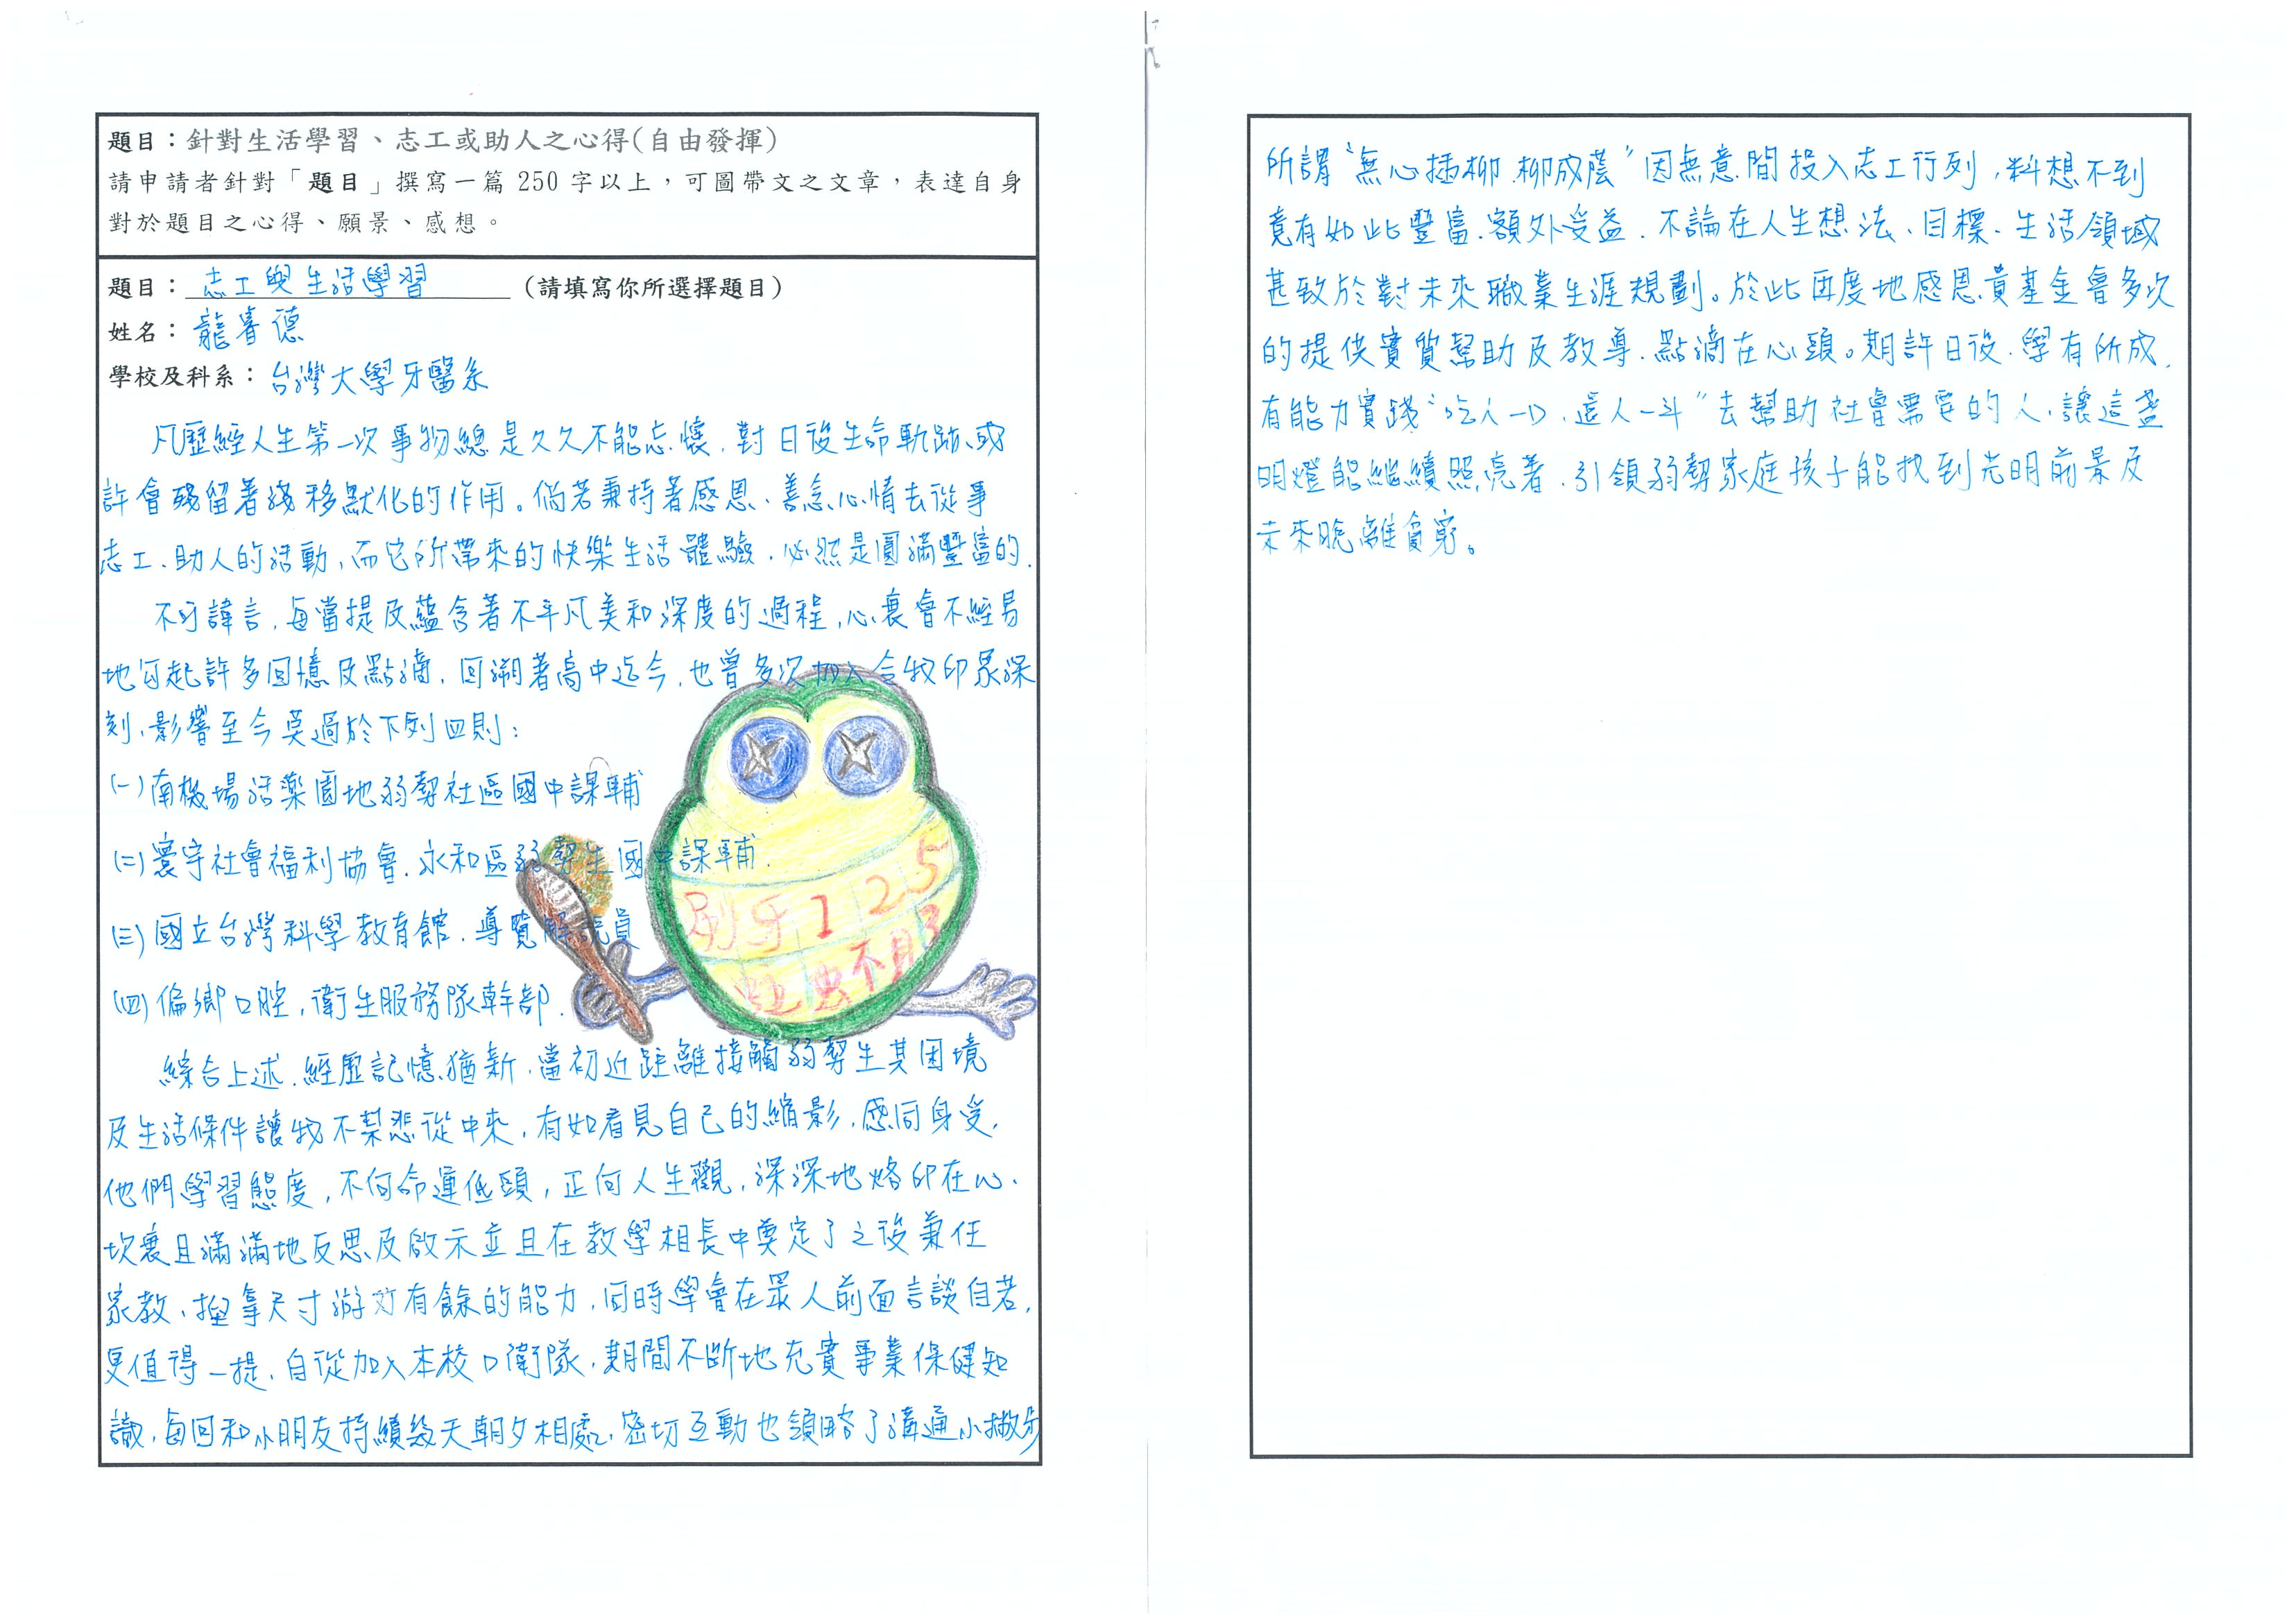 題目：針對生活學習、志工或助人之心得(自由發揮)
請申請者針對「題目」撰寫一篇 250 字以上，可圖帶文之文章，表達自身
對於題目之心得、願景、感想。
題目：志工與生活學習 (請填寫你所選擇題目)
姓名：龍睿德
學校及科系：台灣大學牙醫系
凡歷經人生第一次事物總是久久不能忘懷，對日後生命軌跡、或
許會殘留著淺移默化的作用。倘若秉持著感恩、善念心情去從事
志工、助人的活動，而它所帶來的快樂生活體驗，必然是圓滿豐富的.
不可諱言，每當提及蘊含著不平凡美和深度的過程，心裏會不經易
地勾起許多回憶及點滴，回溯著高中迄今，也曾多次加入令我印象深
刻、影響至今莫過於下列四則：
(一)南機場活藥園地弱勢社區國中課輔
(二)寰宇社會福利協會.永和區弱勢生國中課輔.
(三)國立台灣科學教育館.導覽解說員
(四)偏鄉口腔，衛生服務隊幹部.
刷牙1 2 5
蛀虫不月3
綜合上述.經歷記憶猶新.當初近距離接觸弱勢生其困境
及生活條件讓我不禁悲從中來，有如看見自己的縮影.感同身受，
他們學習態度，不向命運低頭，正向人生觀，深深地烙印在心.
坎裏且滿滿地反思及啟示並且在教學相長中奠定了之後兼任
家教、握拿尺寸游刃有餘的能力，同時學會在眾人前面言談自若，
更值得一提，自從加入本校口衛隊，期間不斷地充實專業保健知
識，每回和小朋友持續幾天朝夕相處，密切互動也領略了溝通小撇步
所謂“無心插柳.柳成蔭”因無意間投入志工行列，料想不到
竟有如此豐富.額外受益.不論在人生想法、目標、生活領域
甚致於對未來職業生涯規劃。於此再度地感恩貴基金會多次
的提供實質幫助及教導.點滴在心頭。期許日後.學有所成，
有能力實踐“吃人一口，還人一斗”去幫助社會需要的人，讓這盞
明燈能繼續照亮著.引領弱勢家庭孩子能找到光明前景及
未來脫離貧窮。